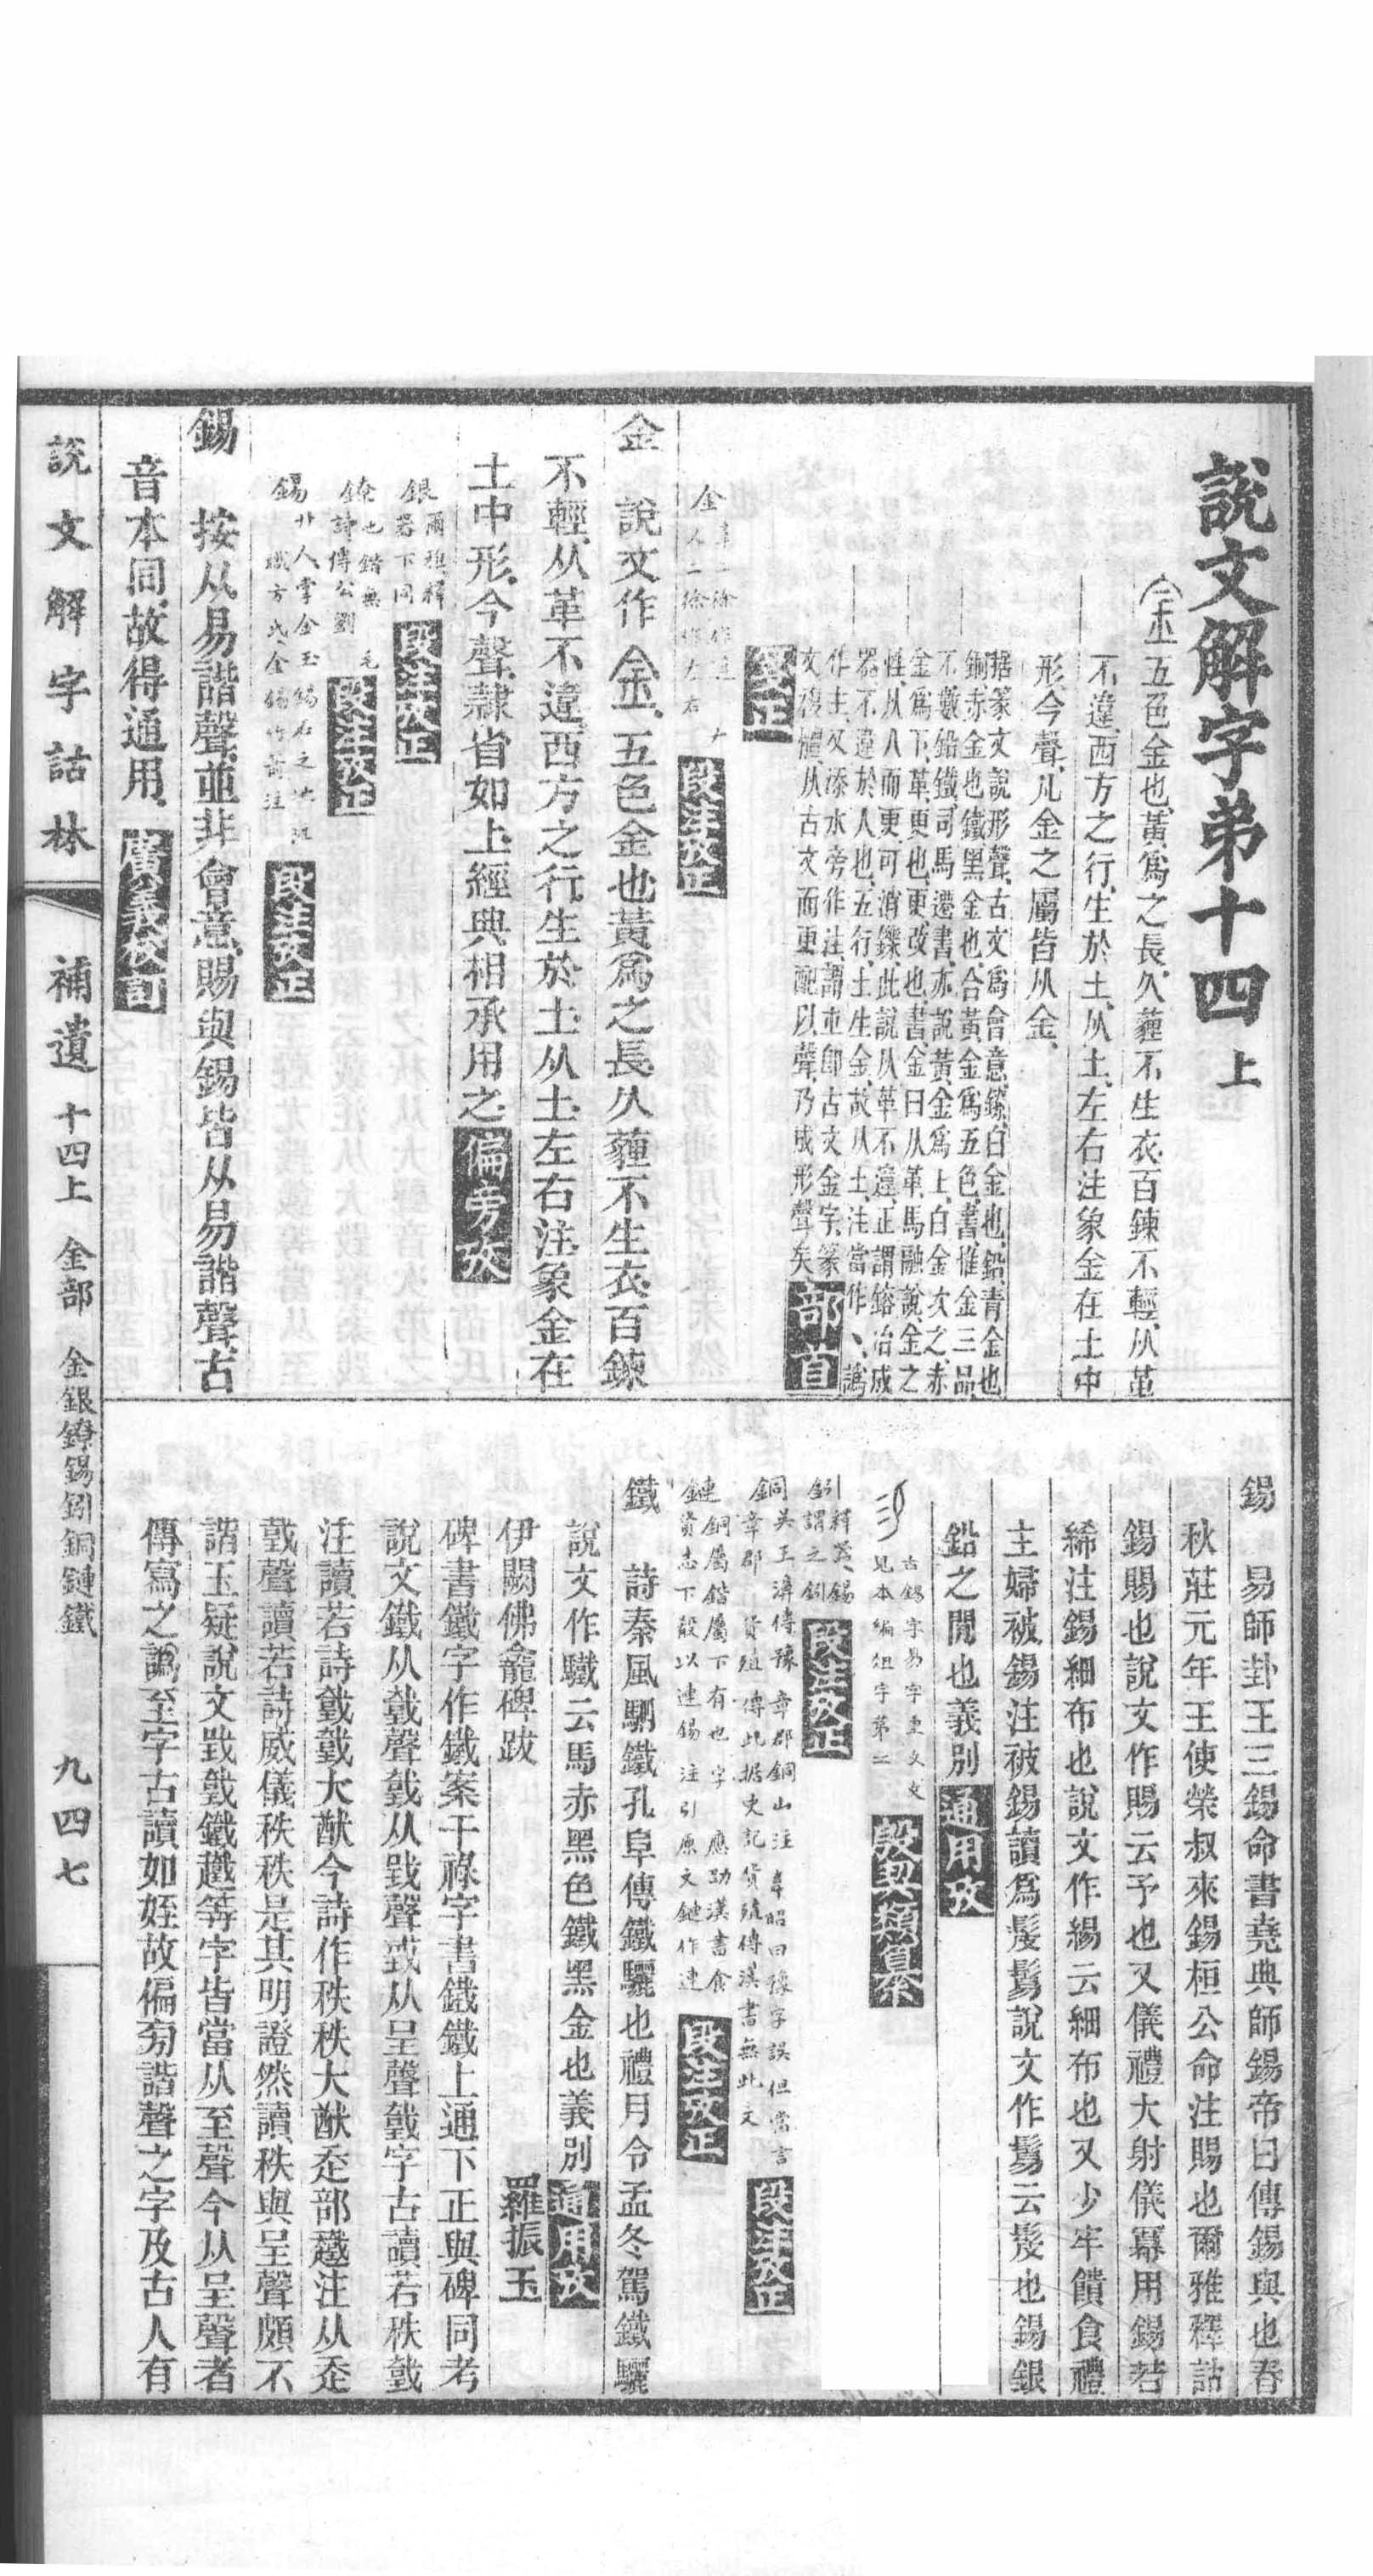 說文解字弟十四上
金五色金也、黃爲之長、久薶不生衣、百鍊不輕、从革
不違、西方之行、生於土、从土、左右注象金在土中
形、今聲、凡金之屬皆从金、
据篆文說形聲、古文爲會意、銀、白金也、鉛、青金也
銅、赤金也、鐵、黑金也、合黃金爲五色、書、惟金三品
不數鉛鐵、司馬遷書、亦說黃金爲上、白金次之、赤
金爲下、革、更也、更、改也、書金曰从革、馬融說、金之
性、从人而更、可消鑠、此說从革不違、正謂鎔冶成
器、不違於人也、五行、土生金、故从土、注當作、、譌
作主、又添水旁作注、謂𠁁卽古文金字、篆
文複體、从古文而更配以聲、乃成形聲矣
部首
段注攷正
金 說文作金、五色金也、黃爲之長、久薶不生衣、百鍊
不輕、从革不違、西方之行、生於土、从土、左右注、象金在
土中形、今聲、隸省如上、經典相承用之、偏旁攷
銀 爾雅釋
器下同
段注攷正
鐐 也鍇無 毛
詩傳公劉
段注攷正
錫 廾人掌金玉錫石之地
職方氏金錫竹箭注
段注攷正
錫 按从易諧聲、並非會意、賜與錫皆从易諧聲、古
音本同、故得通用、廣義校訂
錫 易師卦王三錫命書堯典師錫帝曰傳錫與也春
秋莊元年王使榮叔來錫桓公命注賜也爾雅釋詁
錫賜也說文作賜云予也又儀禮大射儀冪用錫若
絺注錫細布也說文作緆云細布也又少牢饋食禮
主婦被錫注被錫讀爲髲鬄說文作鬄云髲也錫銀
鉛之閒也義別通用攷
古錫字易字重文
見本編䤈字第二
殷契類纂
釼 釋器錫
謂之釼
段注攷正
銅 吳王濞傳豫章郡銅山注韋昭曰豫字誤但當言
章郡 貨殖傳此据史記貨殖傳漢書無此文
段注攷正
鏈 銅屬鍇屬下有也字應劭漢書食
貨志下殽以連錫注引原文鏈作連
段注攷正
鐵 詩秦風駟鐵孔阜傳鐵驪也禮月令孟冬駕鐵驪
說文作驖云馬赤黑色鐵黑金也義別通用攷
伊闕佛龕碑跋 羅振玉
碑書鐵字作鐵案干祿字書鐵鐵上通下正與碑同考
說文鐵从䥫聲𢧜从戜聲或从呈聲𢧜字古讀若秩𢧜
注讀若詩𢧜𢧜大猷今詩作秩秩大猷走部趬注从走
𢧜聲讀若詩威儀秩秩是其明證然讀秩與呈聲頗不
謂玉疑說文戜𢧜鐵趬等字皆當从至聲今从呈聲者
傳寫之譌至字古讀如姪故偏旁諧聲之字及古人有
說文解字詁林 補遺 十四上 金部 金銀鐐錫釼銅鏈鐵 九四七